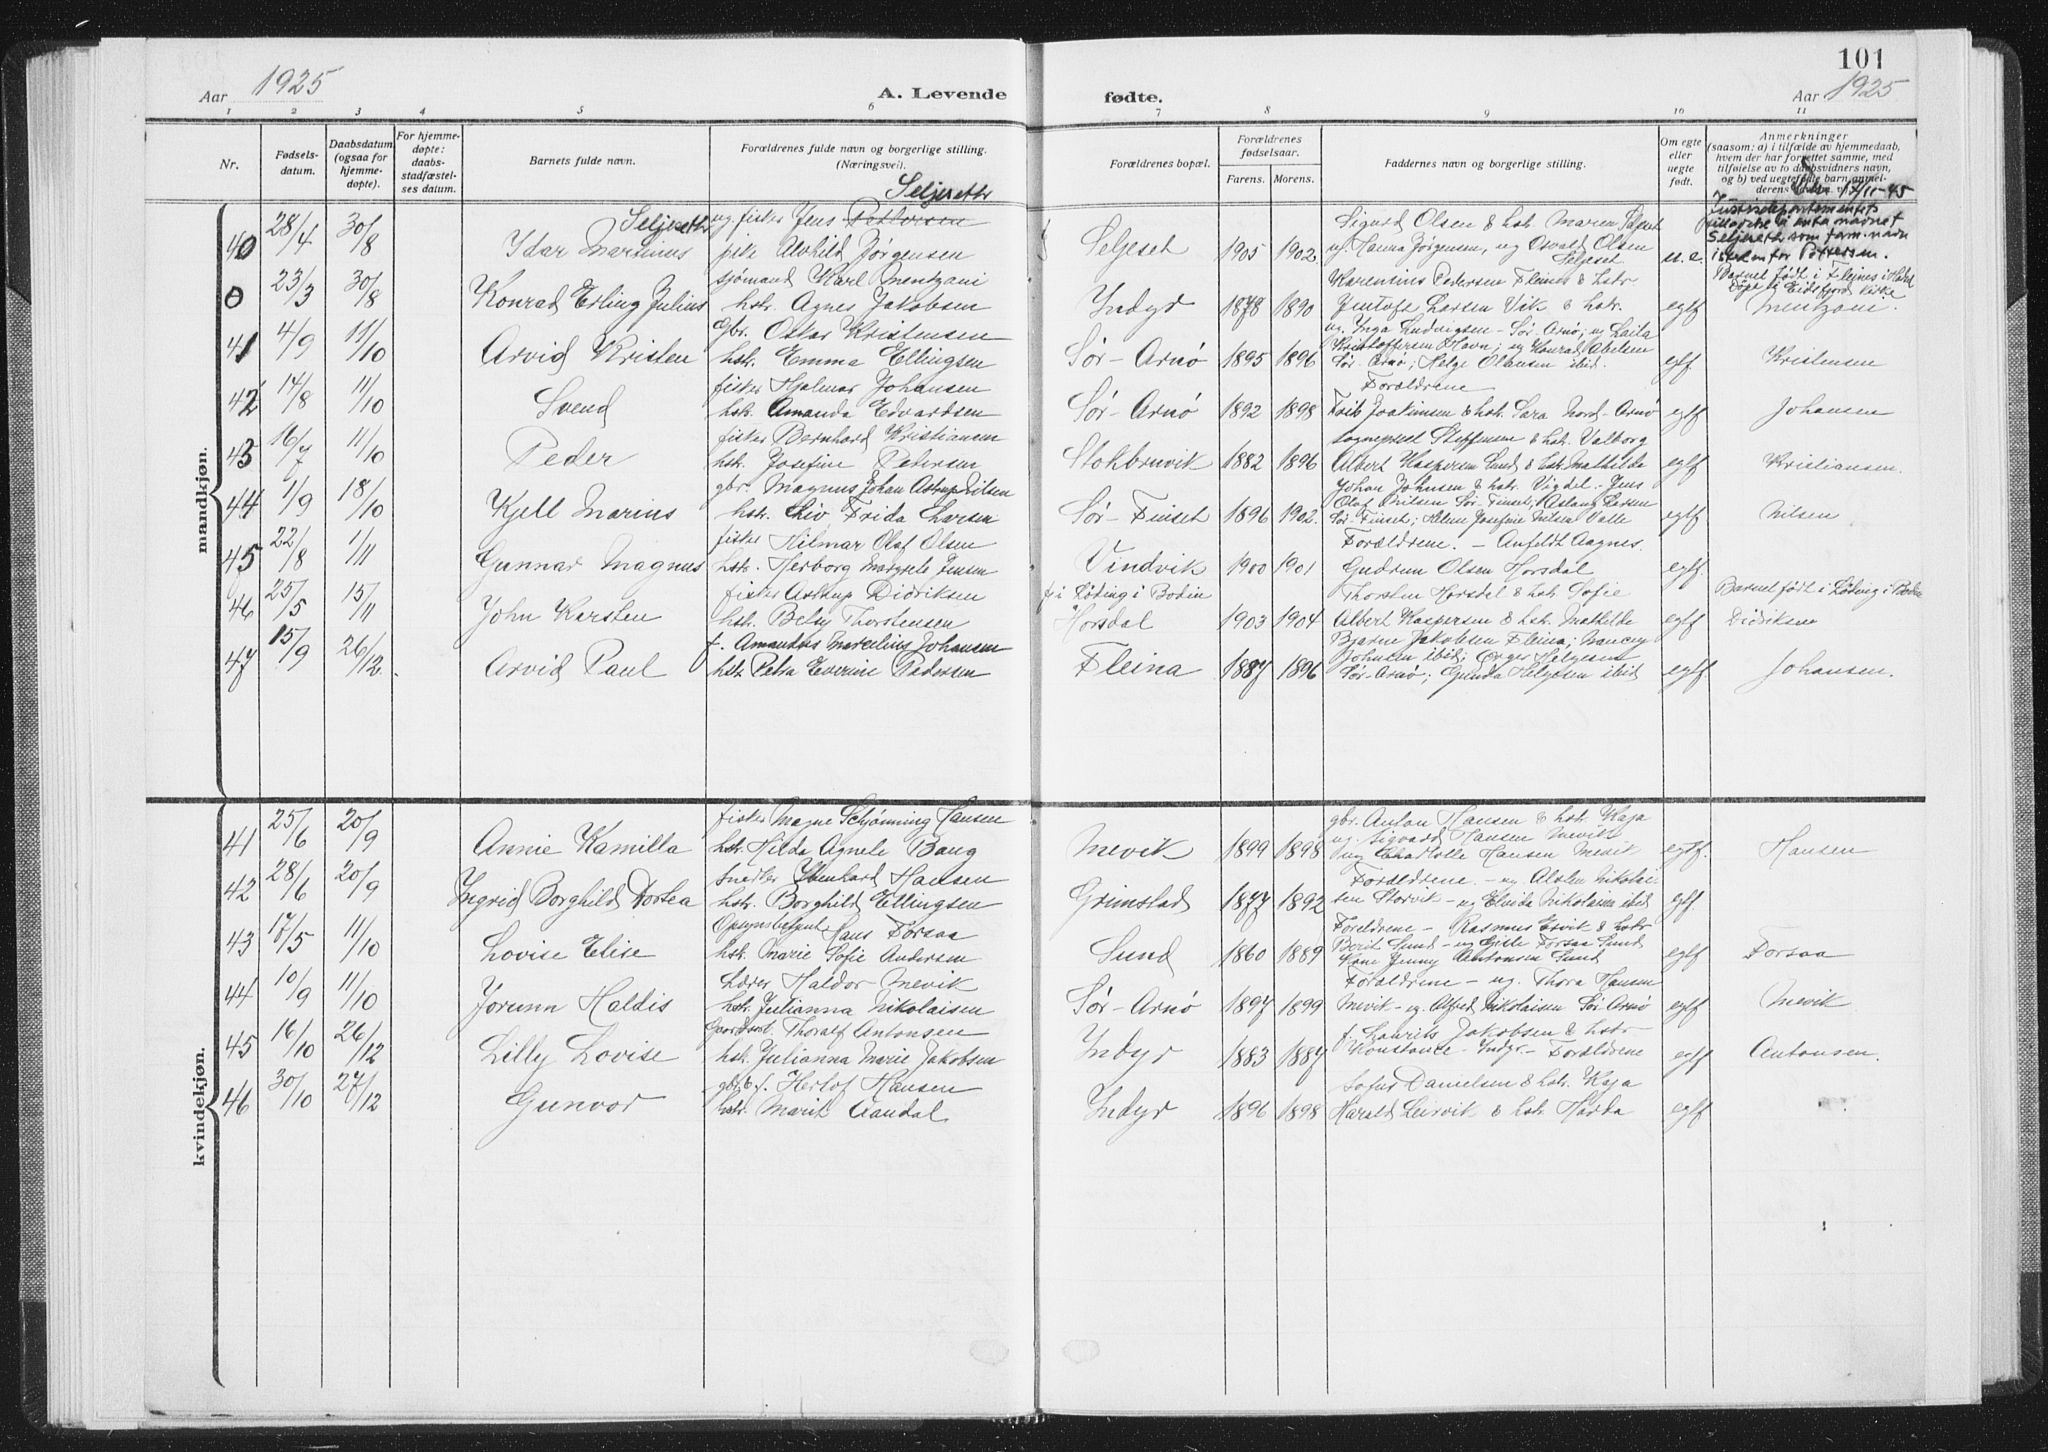 101
Aar 1925
A. Levende
fødte.
Aar 1925
1 2 3 4 5 6 7 8 9 10 11
Nr.
Fødsels-
datum.
Daabsdatum
(ogsaa for
hjemme-
døpte).
For hjemme-
døpte:
daabs-
stadfæstel-
ses datum.
Barnets fulde navn.
Forældrenes fulde navn og borgerlige stilling.
(Næringsvei).
Forældrenes bopæl.
Forældrenes
fødselsaar.
Farens. Morens.
Faddernes navn og borgerlige stilling.
Om egte
eller
uegte
født.
Anmerkninger
(saasom: a) i tilfælde av hjemmedaab,
hvem der har forrettet samme, med
tilføielse av to daabsvidners navn,
og b) ved uegtefødte barn anmel-
derens
mandkjøn.
Seljeseth
40 28/4 30/8 Seljeseth
Idar Marinius
ug. fisker Jens Pettersen
pike Alvhild Jørgensen
Seljeset 1905 1902
Sigurd Olsen & hst. Maren Seljeset
uf. Hanna Jørgensen, ug Osvald Olsen
Seljeset
u. e.
17/11-45
Justisdepartementets
Seljeseth som fam.navn
istedenfor Pettersen.
0 23/3 30/8 Konrad Erling Julius
sjømand Karl Mentzoni
hst. Agnes Jakobsen
Indyr 1878 1890
Karensius Pedersen Fleina & hstr.
Jentoft Larsen Vik & hstr.
egtf
Barnet født i Fleines i Hadsel
Døpt i Eidsfjord kirke
Mentzoni.
41 4/9 11/10 Arvid Kristen
gbr. Oskar Kristensen
hst. Emma Ellingsen
Sør-Arnø 1895 1896
ug. Inga Ludvigsen - Sør-Arnø; ug Laila
Kristoffersen Havn; ug Konrad Abelsen
Sør-Arnø; Helge Olausen ibid.
egtf Kristensen
42 14/8 11/10 Svend
fisker Hjalmar Johansen
hst. Amanda Edvardsen
Sør-Arnø 1892 1898
Forældrene
Frits Joakimsen & hst. Sara Nord-Arnø
egtf Johansen
43 16/7 11/10 Peder
fisker Bernhard Kristiansen
hst. Josefine Petersen
Stokbruvik 1882 1896
sogneprest Steffensen & hst. Valborg
Albert Kaspersen Sund & hst. Mathilde
egtf Kristiansen.
44 1/9 18/10 Kjell Marius
gbr. Magnus Johan Astrup Nilsen
hst. Liv Frida Larsen
Sør-Finset 1896 1902.
Johan Johnsen & hst. Vigdel. - Jens
Olaf Nilsen Sør-Finset; Aslaug Larsen
Sør-Finset; Helene Josefine Nilsen Valle
egtf Nilsen
45 22/8 1/11 Gunnar Magnus
fisker Hilmar Olaf Olsen
hst. Herborg Margrete Jensen
Vindvik 1900 1901
Forældrene. - Anfeldt Aagnes.
Gudrun Olsen Horsdal
egtf.
46 25/5 15/11 John Karsten
fisker Astrup Didriksen
hst. Betsy Thorstensen
f. i Løding i Bodin
Horsdal 1903 1904
Thorsten Horsdal & hst. Sofie
Albert Kaspersen & hst. Mathilde
egtf
Barnet født i Løding i Bodin
Didriksen
47 15/9 26/12. Arvid Paul
f. Amandus Marcelius Johansen
hst. Petra Everine Pedersen
Fleina 1887 1896
Bjarne Jakobsen Fleina; Nancy
Johnsen ibid; Helgesen
Sør-Arnø; Gunda Helgesen ibid
egtf Johansen.
kvindekjøn.
41 25/6 20/9 Annie Kamilla
fisker Magne Schjønning Hansen
hst. Hilda Agnete Bang
Mevik 1899 1898
gbr. Anton Hansen & hst. Kaja
ug. Sigvard Hansen Mevik
ug Charlotte Hansen Mevik
egtf. Hansen
42 28/6 20/9 Ingrid Borghild Dortea
snedker Ybenhard Hansen
hst. Borghild Ellingsen
Grimstad 1877 1892
Forældrene. - ug. Nikolai-
sen Storvik - ug Elvida Nikolaisen ibid
egtf.
43 17/5 11/10 Lovise Elise
Opsynsbetjent Hans Forsaa
hst. Marie Sofie Andersen
Sund 1860 1889
Foreldrene - Rasmus Esvik & hstr
Berit Sund - ug Gitte Forsaa Sund
Kone Jenny Antonsen Sund
egtf Forsaa
44 10/9 11/10 Jorunn Haldis
Lærer Haldor Mevik
hst. Julianna Nikolaisen
Sør-Arnø 1897 1899
Foraldrene - ug. Thora Hansen
Mevik - ug. Alfred Nikolaisen Sør-Arnø
egtf Mevik
45 16/10 26/12 Lilly Lovise
Thoralf Antonsen
hst. Julianna Marie Jakobsen
Indyr 1883 1887
f. Laurits Jakobsen & hstr
Konstance - Indyr - Foraldrene
egtf Antonsen.
46 30/10 27/12 Gunvor
gbr. & f. Herlof Hansen
hstr. Marit Aandal
Indyr 1896 1898
Sofus Danielsen & hst. Kaja
Harald Leirvik & hst. Harda
egtf